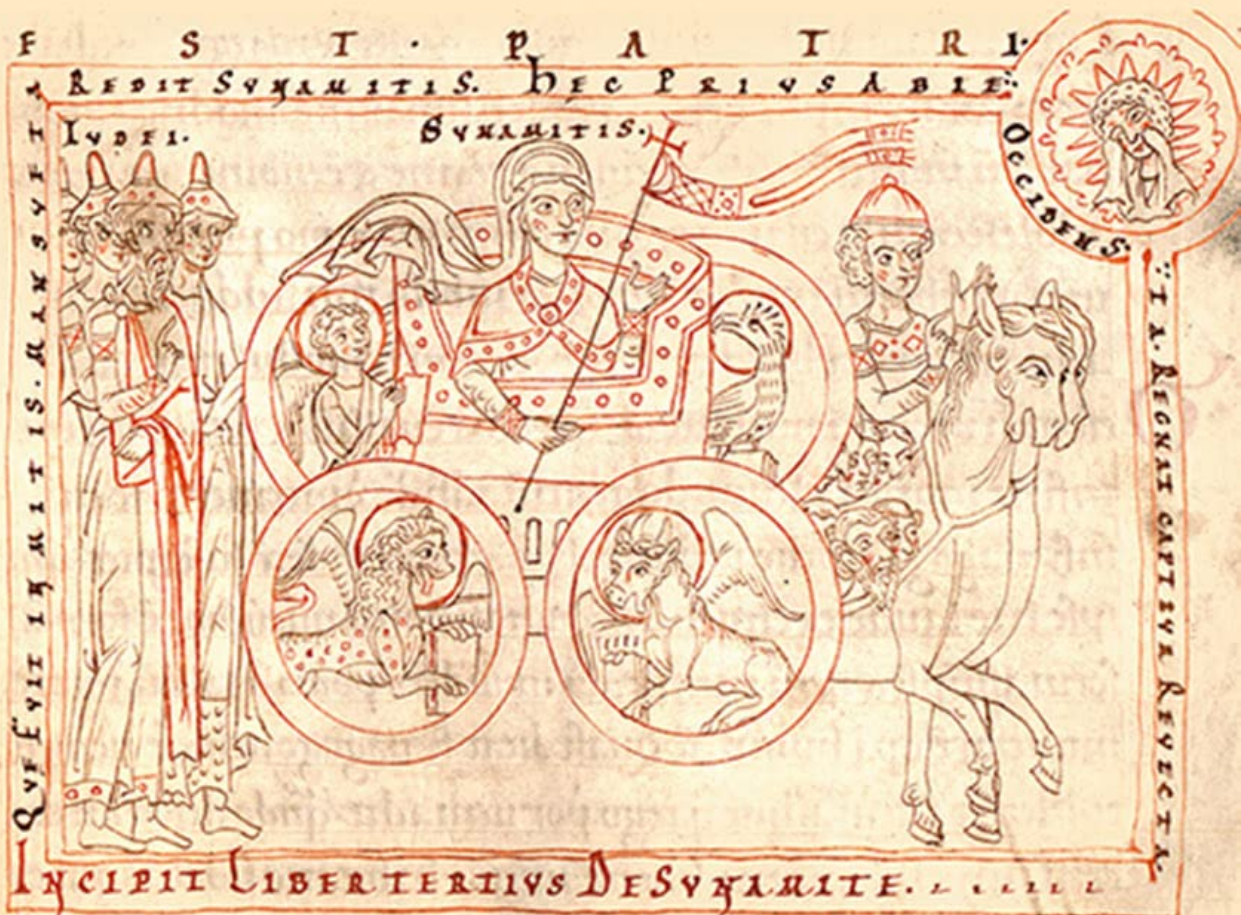 F S T · P A T R I ·
REDIT SVNAMITIS. hEC PRIVS ABIE
IVDEI.
SVNAMITIS.
OCCIDENS
QVE FVIT INMITIS. MANSVETA
TA. REGNAT CAPTIVA REVECTA.
INCIPIT LIBER TERTIVS DE SVNAMITE.